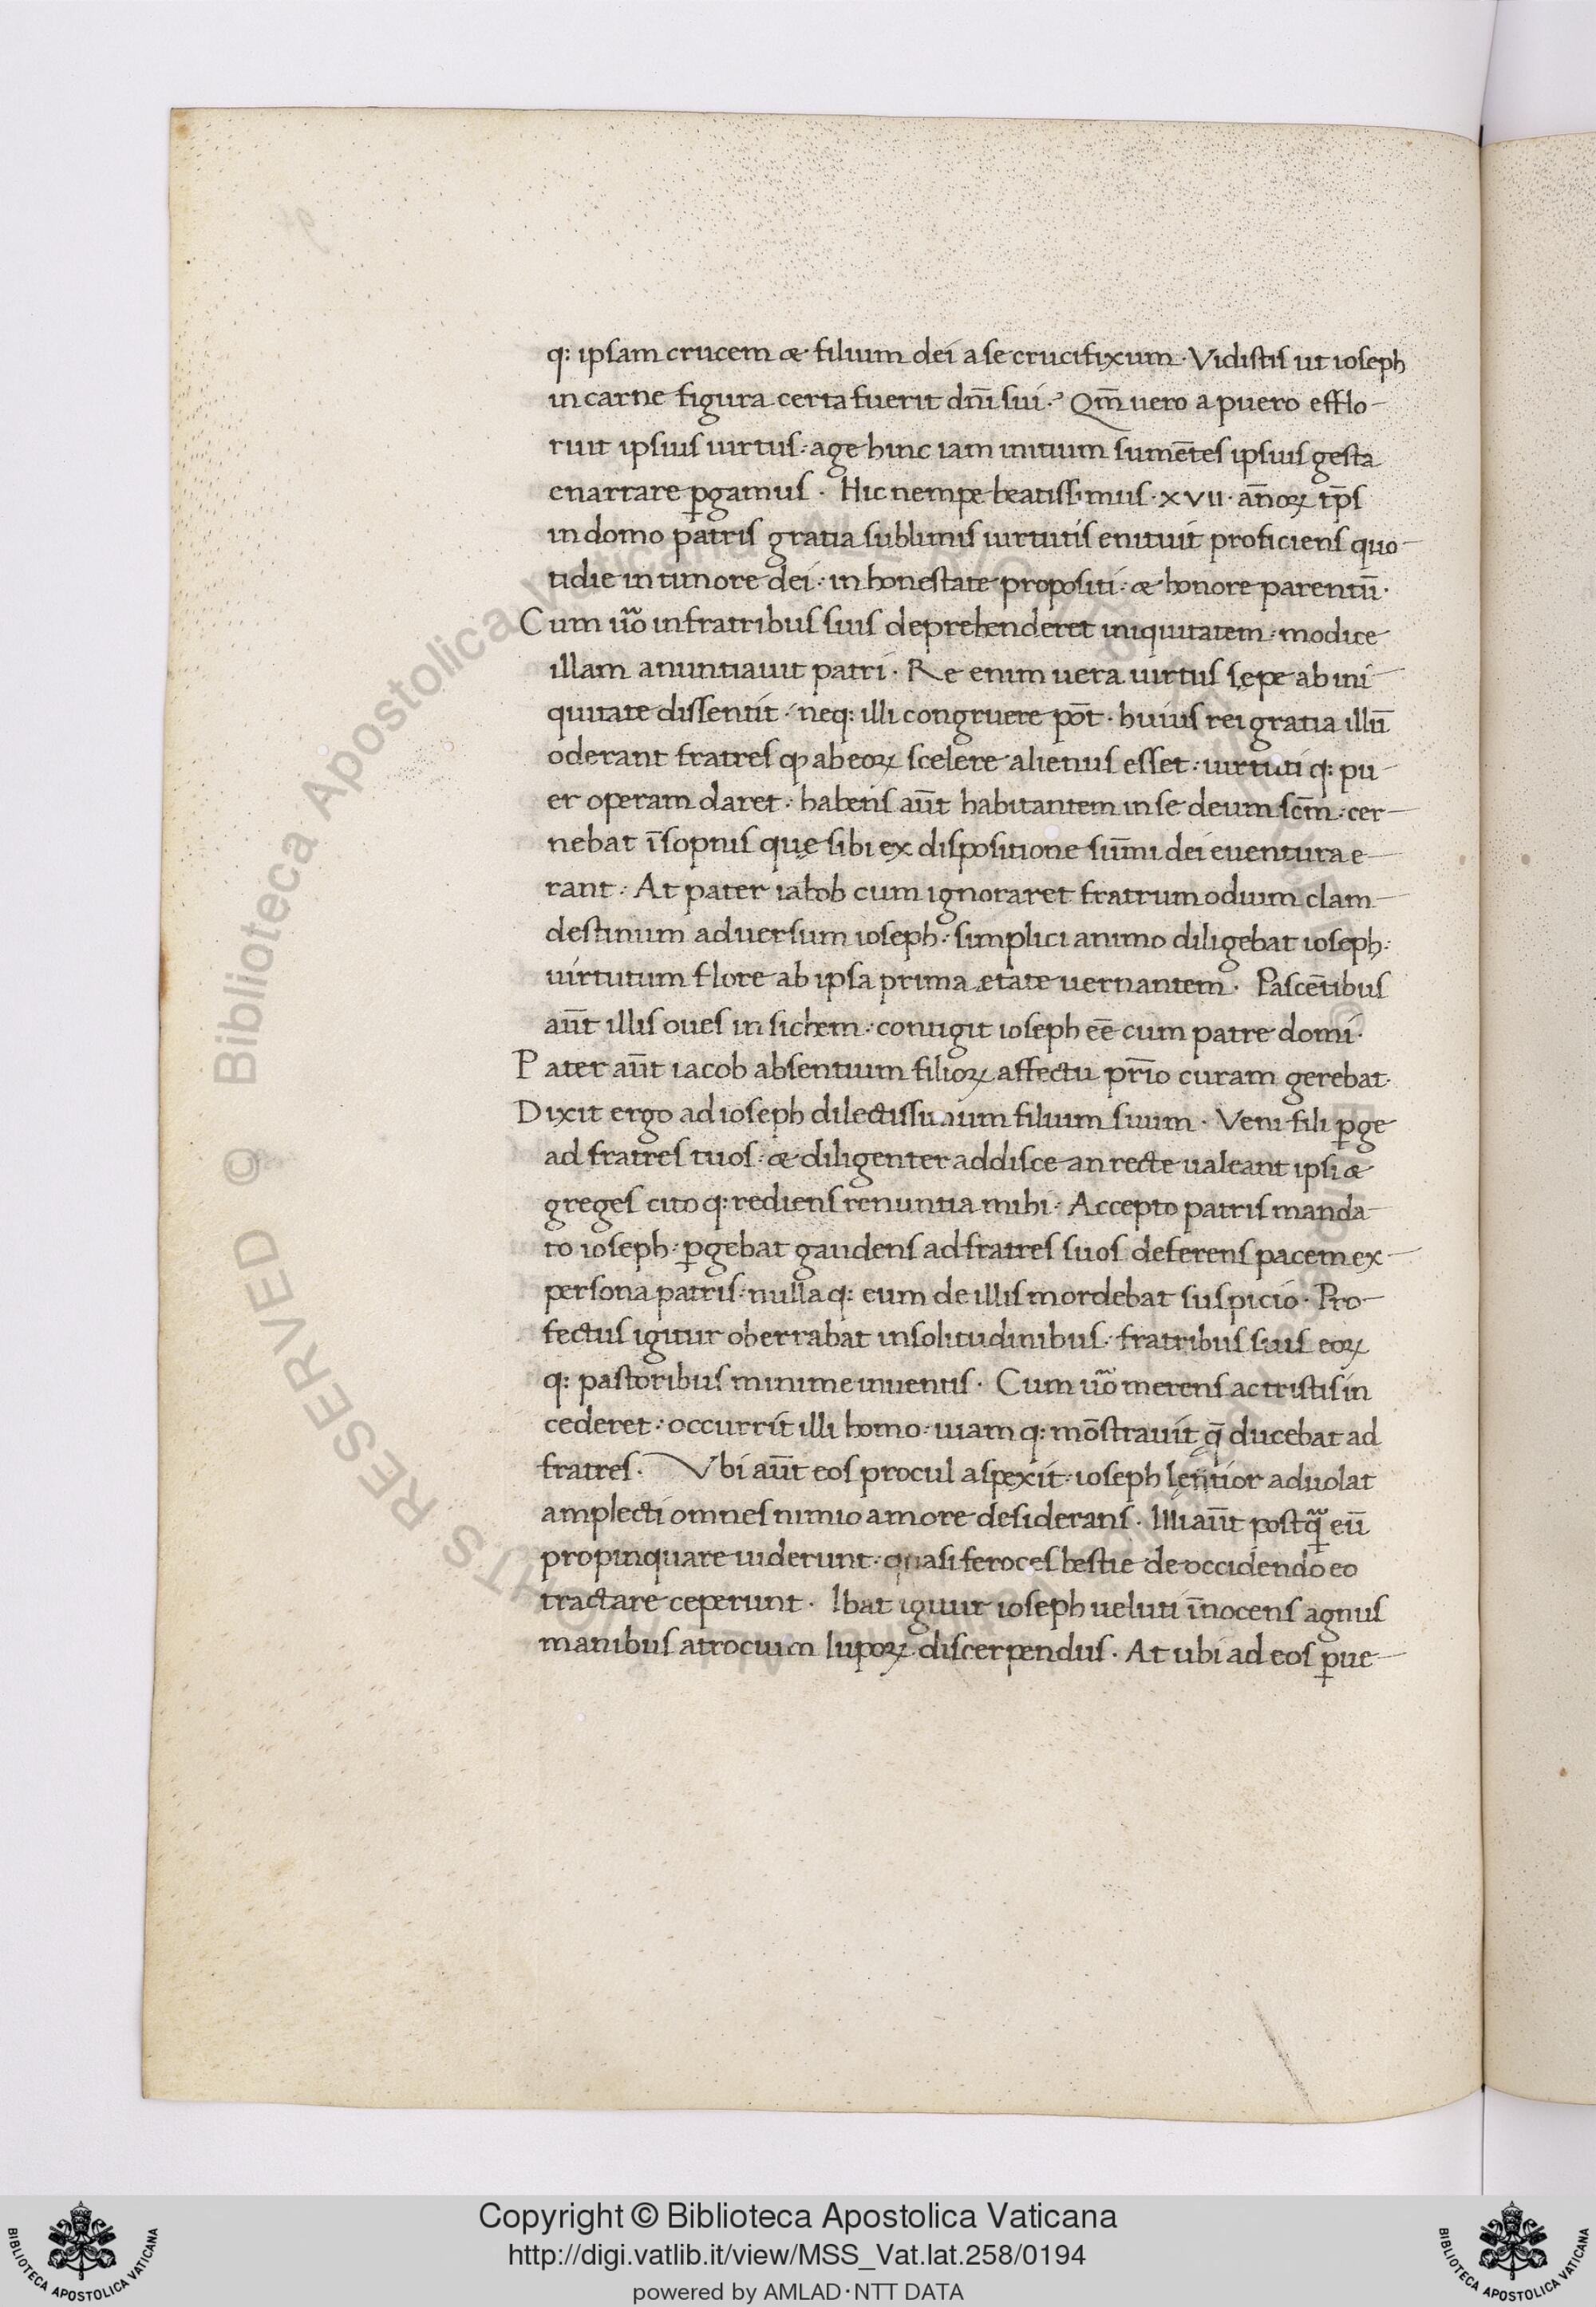 q: ipsam crucem & filium dei a se crucifixum · Vidistis ut ioseph
in carne figura certa fuerit dnī sui ·' Qm̄ uero a puero efflo-
ruit ipsius uirtus : age hinc iam initium sumētes ipsius gesta
enarrare ꝑgamus · Hic nempe beatissimus · XVII · annoꝝ tp̄s
in domo patris gratia sublimis uirtutis enituit proficiens quo-
tidie in timore dei : in honestate propositi : & honore parentū ·
Cum ūo in fratribus suis deprehenderet iniquitatem : modice
illam anuntiauit patri · Re enim uera uirtus sępe ab ini-
quitate dissentit : neq: illi congruere pōt · huius rei gratia illū
oderant fratres ꝙ ab eoꝝ scelere alienus esset : uirtuti q: pu-
er operam daret : habens aūt habitantem in se deum scm̄ : cer-
nebat īsopnis que sibi ex dispositione sūmi dei euentura e-
rant : At pater iacob cum ignoraret fratrum odium clam-
destinum aduersum ioseph : simplici animo diligebat ioseph :
uirtutum flore ab ipsa prima ętate uernantem · Pascētibus
aūt illis oues in sichem : contigit ioseph eē cum patre domi ·
Pater aūt iacob absentium filioꝝ affectu pr̄io curam gerebat ·
Dixit ergo ad ioseph dilectissimum filium suum · Veni fili ꝑge
ad fratres tuos : & diligenter addisce an recte ualeant ipsi &
greges cito q: rediens renuntia mihi : Accepto patris manda-
to ioseph : ꝑgebat gaudens ad fratres suos deferens pacem ex-
persona patris : nulla q: eum de illis mordebat suspicio · Pro-
fectus igitur oberrabat in solitudinibus : fratribus suis eoꝝ
q: pastoribus minime inuentis · Cum ūo merens ac tristis in
cederet : occurrit illi homo : uiam q: mōstrauit q̄ ducebat ad
fratres · Vbi aūt eos procul aspexit : ioseph lęntior aduolat
amplecti omnes nimio amore desiderans · Illi aūt postꝗ̄ eū
propinquare uiderunt : quasi feroces bestie de occidendo eo
tractare ceperunt · Ibat igitur ioseph ueluti īnocens agnus
manibus atrocium lupoꝝ discerpendus · At ubi ad eos ꝑue-
© Biblioteca Apostolica Vaticana
ALL RIGHTS RESERVED
Copyright © Biblioteca Apostolica Vaticana
http://digi.vatlib.it/view/MSS_Vat.lat.258/0194
powered by AMLAD·NTT DATA
BIBLIOTECA APOSTOLICA VATICANA
BIBLIOTECA APOSTOLICA VATICANA